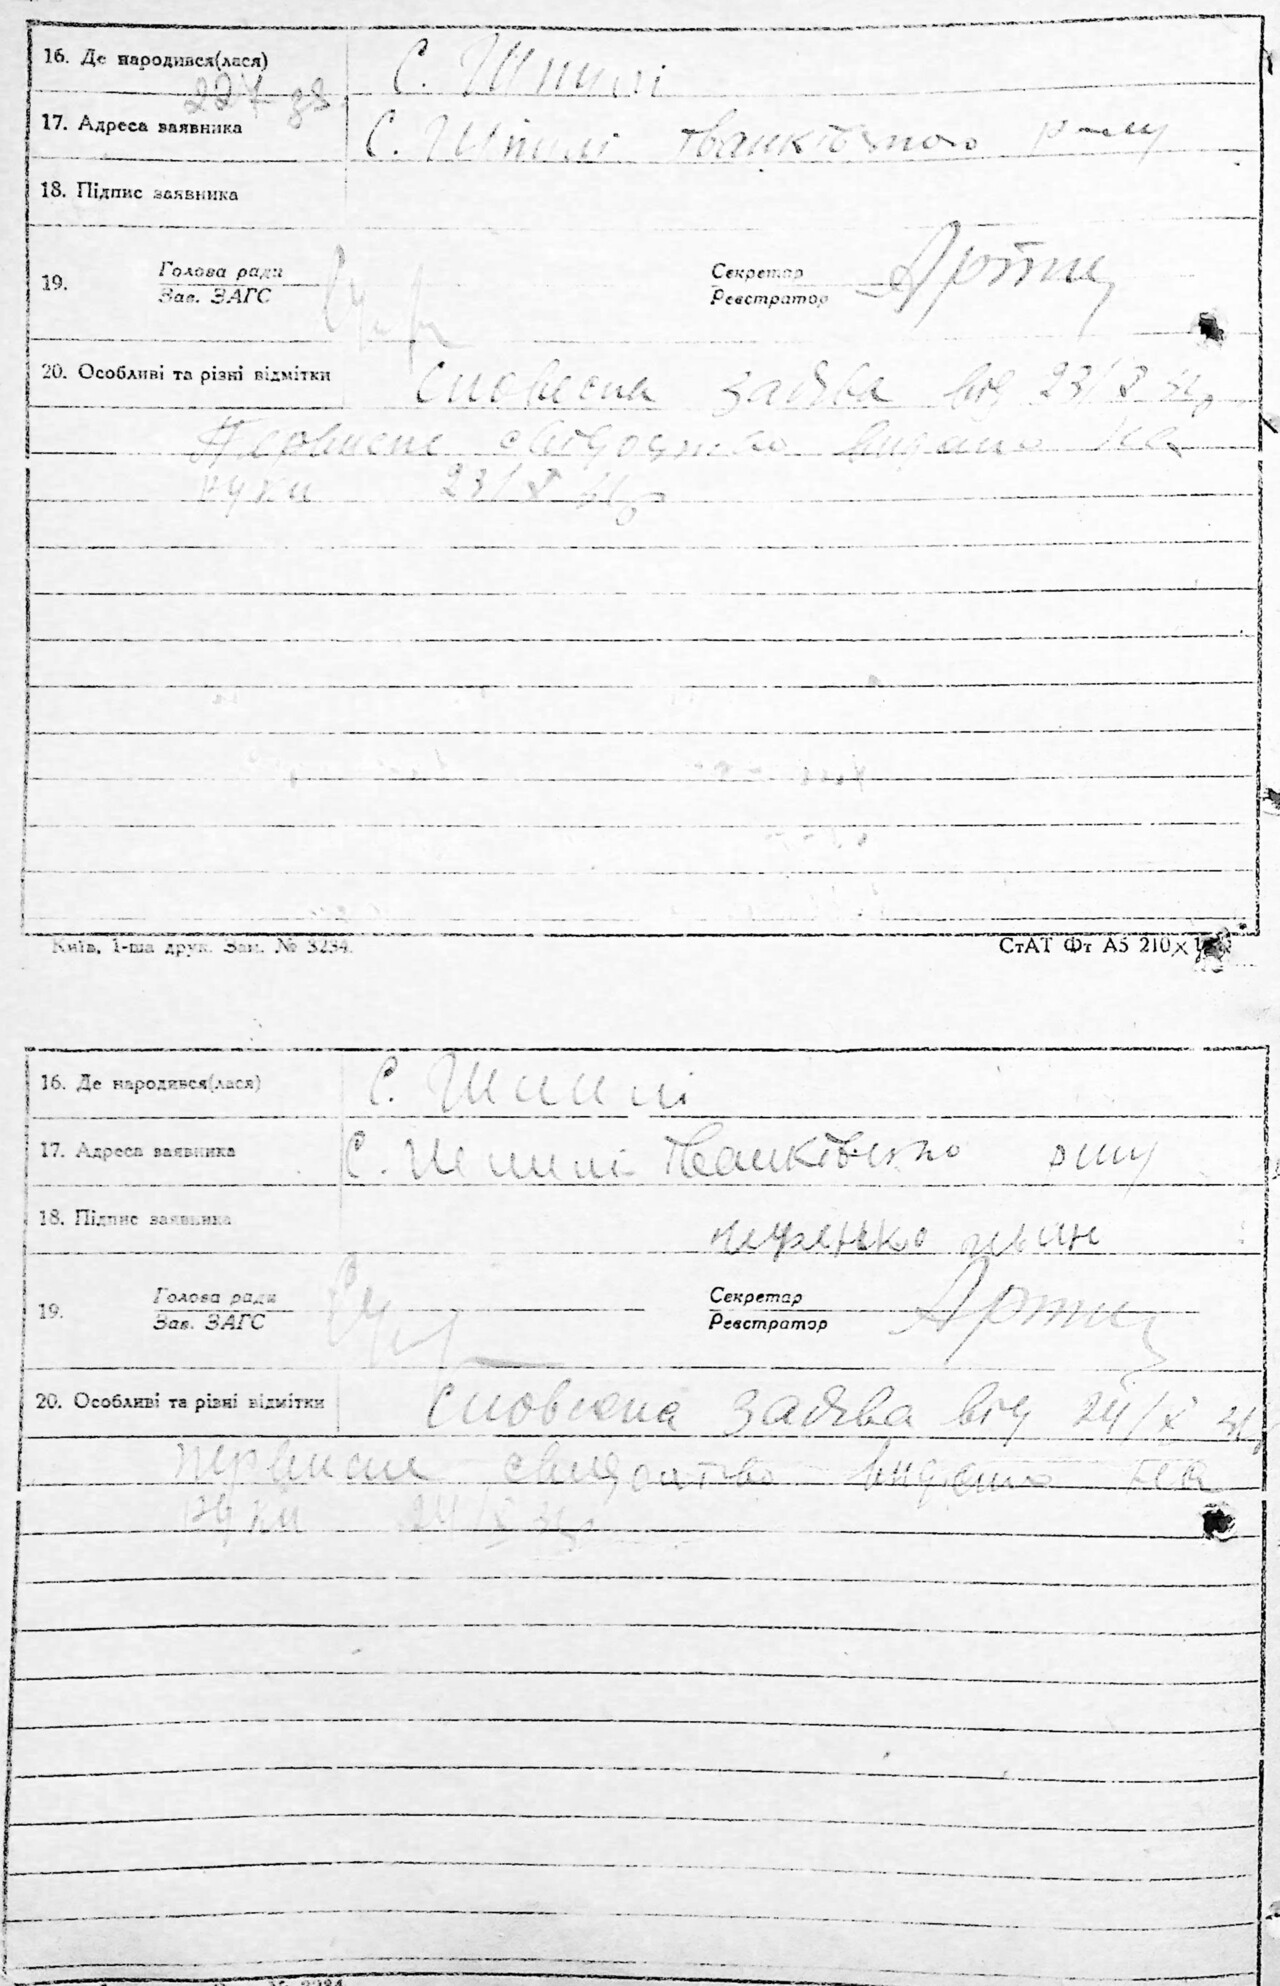 16. Де народився(лася) С. Шпилі
227 зв.
17. Адреса заявника С. Шпилі Іванківського р-ну
18. Підпис заявника
19. Голова ради Секретар
Зав. ЗАГС Реєстратор
20. Особливі та різні відмітки Словесна заява від 23/X
Первисне свідоцтво видано на
руки 23/X
Київ, 1-ша друк. Зам. № 3234. СтАТ Фт А5 210×
16. Де народився(лася) С. Шпилі
17. Адреса заявника С. Шпилі Іванківського р-ну
18. Підпис заявника
19. Голова ради Секретар
Зав. ЗАГС Реєстратор
20. Особливі та різні відмітки Словесна заява від 24/X
Первисне свидоцтво видано на
руки 24/X